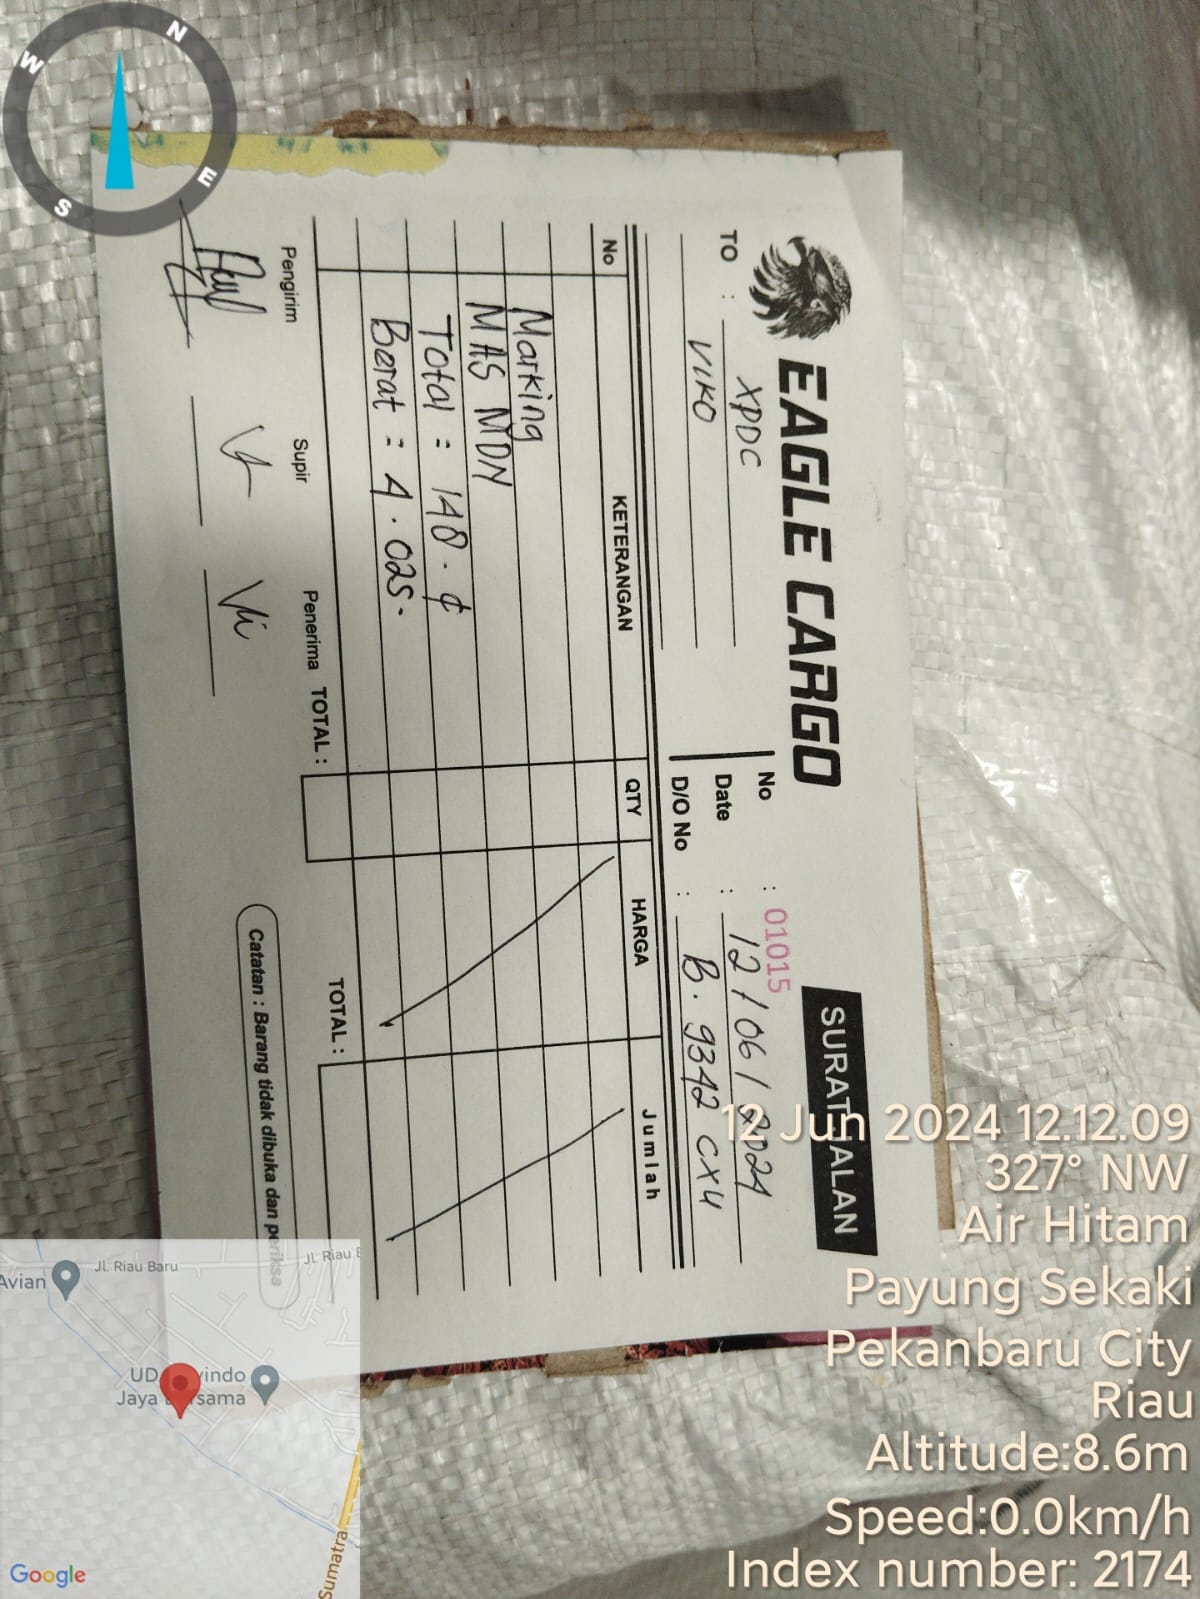 EAGLE CARGO
SURAT JALAN
TO : XPDC
VIKO
No : 01015
Date : 12/06/2024
D/O No : B. 9342 CXU
No KETERANGAN QTY HARGA Jumlah
Marking
MAS MDN
Total : 148. ¢
Berat : 4.025.
TOTAL :
TOTAL :
Pengirim Supir Penerima
Catatan : Barang tidak dibuka dan periksa
N
W
E
S
12 Jun 2024 12.12.09
327° NW
Air Hitam
Payung Sekaki
Pekanbaru City
Riau
Altitude:8.6m
Speed:0.0km/h
Index number: 2174
Avian
Jl. Riau Baru
Jl. Riau B
UD
vindo
Jaya
sama
Sumatra
Google